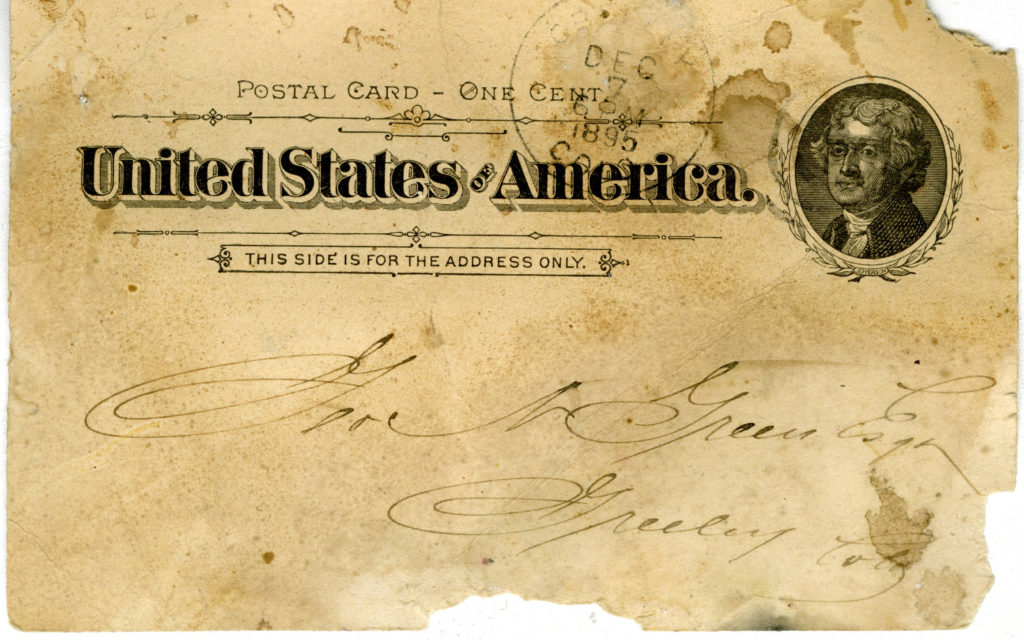 POSTAL CARD - ONE CENT.
DEC
7
1895
COLO
United States OF America.
THIS SIDE IS FOR THE ADDRESS ONLY.
Geo N Green Esqr
Greeley
Colo